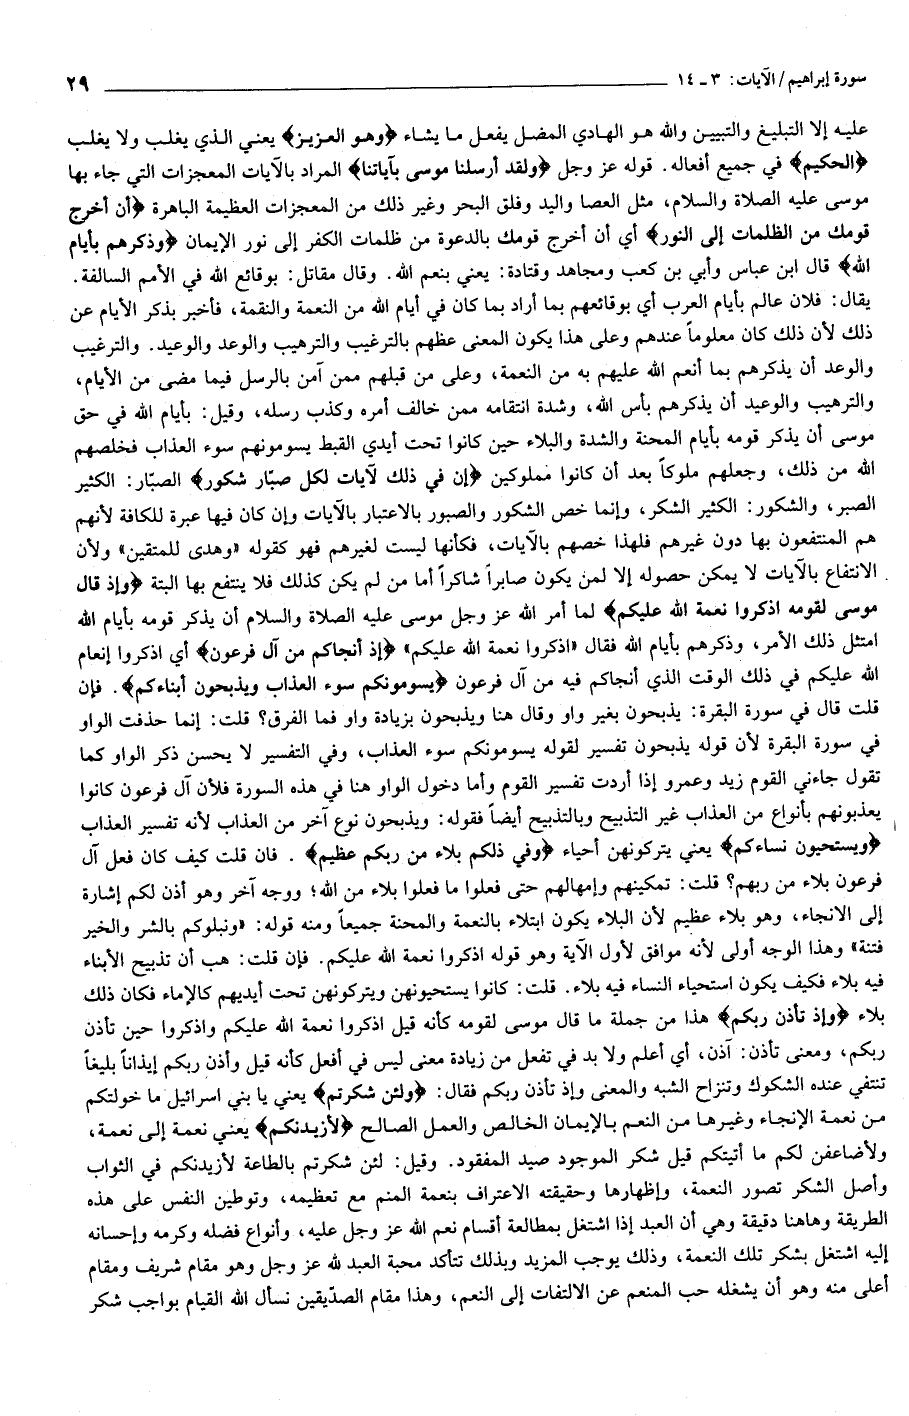 سورة إبراهيم/ الآيات: ٣ ـ ١٤ ٢٩
عليه إلا التبليغ والتبيين والله هو الهادي المضل يفعل ما يشاء ﴿وهو العزيز﴾ يعني الذي يغلب ولا يغلب
﴿الحكيم﴾ في جميع أفعاله. قوله عز وجل ﴿ولقد أرسلنا موسى بآياتنا﴾ المراد بالآيات المعجزات التي جاء بها
موسى عليه الصلاة والسلام، مثل العصا واليد وفلق البحر وغير ذلك من المعجزات العظيمة الباهرة ﴿أن أخرج
قومك من الظلمات إلى النور﴾ أي أن أخرج قومك بالدعوة من ظلمات الكفر إلى نور الإيمان ﴿وذكرهم بأيام
الله﴾ قال ابن عباس وأبي بن كعب ومجاهد وقتادة: يعني بنعم الله. وقال مقاتل: بوقائع الله في الأمم السالفة.
يقال: فلان عالم بأيام العرب أي بوقائعهم بما أراد بما كان في أيام الله من النعمة والنقمة، فأخبر بذكر الأيام عن
ذلك لأن ذلك كان معلوماً عندهم وعلى هذا يكون المعنى عظهم بالترغيب والترهيب والوعد والوعيد. والترغيب
والوعد أن يذكرهم بما أنعم الله عليهم به من النعمة، وعلى من قبلهم ممن آمن بالرسل فيما مضى من الأيام،
والترهيب والوعيد أن يذكرهم بأس الله، وشدة انتقامه ممن خالف أمره وكذب رسله، وقيل: بأيام الله في حق
موسى أن يذكر قومه بأيام المحنة والشدة والبلاء حين كانوا تحت أيدي القبط يسومونهم سوء العذاب فخلصهم
الله من ذلك، وجعلهم ملوكاً بعد أن كانوا مملوكين ﴿إن في ذلك لآيات لكل صبّار شكور﴾ الصبّار: الكثير
الصبر، والشكور: الكثير الشكر، وإنما خص الشكور والصبور بالاعتبار بالآيات وإن كان فيها عبرة للكافة لأنهم
هم المنتفعون بها دون غيرهم فلهذا خصهم بالآيات، فكأنها ليست لغيرهم فهو كقوله «وهدى للمتقين» ولأن
الانتفاع بالآيات لا يمكن حصوله إلا لمن يكون صابراً شاكراً أما من لم يكن كذلك فلا ينتفع بها البتة ﴿وإذ قال
موسى لقومه اذكروا نعمة الله عليكم﴾ لما أمر الله عز وجل موسى عليه الصلاة والسلام أن يذكر قومه بأيام الله
امتثل ذلك الأمر، وذكرهم بأيام الله فقال «اذكروا نعمة الله عليكم» ﴿إذ أنجاكم من آل فرعون﴾ أي اذكروا إنعام
الله عليكم في ذلك الوقت الذي أنجاكم فيه من آل فرعون ﴿يسومونكم سوء العذاب ويذبحون أبناءكم﴾. فإن
قلت قال في سورة البقرة: يذبحون بغير واو وقال هنا ويذبحون بزيادة واو فما الفرق؟ قلت: إنما حذفت الواو
في سورة البقرة لأن قوله يذبحون تفسير لقوله يسومونكم سوء العذاب، وفي التفسير لا يحسن ذكر الواو كما
تقول جاءني القوم زيد وعمرو إذا أردت تفسير القوم وأما دخول الواو هنا في هذه السورة فلأن آل فرعون كانوا
يعذبونهم بأنواع من العذاب غير التذبيح وبالتذبيح أيضاً فقوله: ويذبحون نوع آخر من العذاب لأنه تفسير العذاب
﴿ويستحيون نساءكم﴾ يعني يتركونهن أحياء ﴿وفي ذلكم بلاء من ربكم عظيم﴾ . فان قلت كيف كان فعل آل
فرعون بلاء من ربهم؟ قلت: تمكينهم وإمهالهم حتى فعلوا ما فعلوا بلاء من الله؛ ووجه آخر وهو أذن لكم إشارة
إلى الانجاء، وهو بلاء عظيم لأن البلاء يكون ابتلاء بالنعمة والمحنة جميعاً ومنه قوله: «ونبلوكم بالشر والخير
فتنة» وهذا الوجه أولى لأنه موافق لأول الآية وهو قوله اذكروا نعمة الله عليكم. فإن قلت: هب أن تذبيح الأبناء
فيه بلاء فكيف يكون استحياء النساء فيه بلاء. قلت: كانوا يستحيونهن ويتركونهن تحت أيديهم كالإماء فكان ذلك
بلاء ﴿وإذ تأذن ربكم﴾ هذا من جملة ما قال موسى لقومه كأنه قيل اذكروا نعمة الله عليكم واذكروا حين تأذن
ربكم، ومعنى تأذن: آذن، أي أعلم ولا بد في تفعل من زيادة معنى ليس في أفعل كأنه قيل وأذن ربكم إيذاناً بليغاً
تنتفي عنده الشكوك وتنزاح الشبه والمعنى وإذ تأذن ربكم فقال: ﴿ولئن شكرتم﴾ يعني يا بني اسرائيل ما خولتكم
من نعمة الإنجاء وغيرها من النعم بالإيمان الخالص والعمل الصالح ﴿لأزيدنكم﴾ يعني نعمة إلى نعمة،
ولأضاعفن لكم ما أتيتكم قيل شكر الموجود صيد المفقود. وقيل: لئن شكرتم بالطاعة لأزيدنكم في الثواب
وأصل الشكر تصور النعمة، وإظهارها وحقيقته الاعتراف بنعمة المنم مع تعظيمه، وتوطين النفس على هذه
الطريقة وهاهنا دقيقة وهي أن العبد إذا اشتغل بمطالعة أقسام نعم الله عز وجل عليه، وأنواع فضله وكرمه وإحسانه
إليه اشتغل بشكر تلك النعمة، وذلك يوجب المزيد وبذلك تتأكد محبة العبد لله عز وجل وهو مقام شريف ومقام
أعلى منه وهو أن يشغله حب المنعم عن الالتفات إلى النعم، وهذا مقام الصدّيقين نسأل الله القيام بواجب شكر